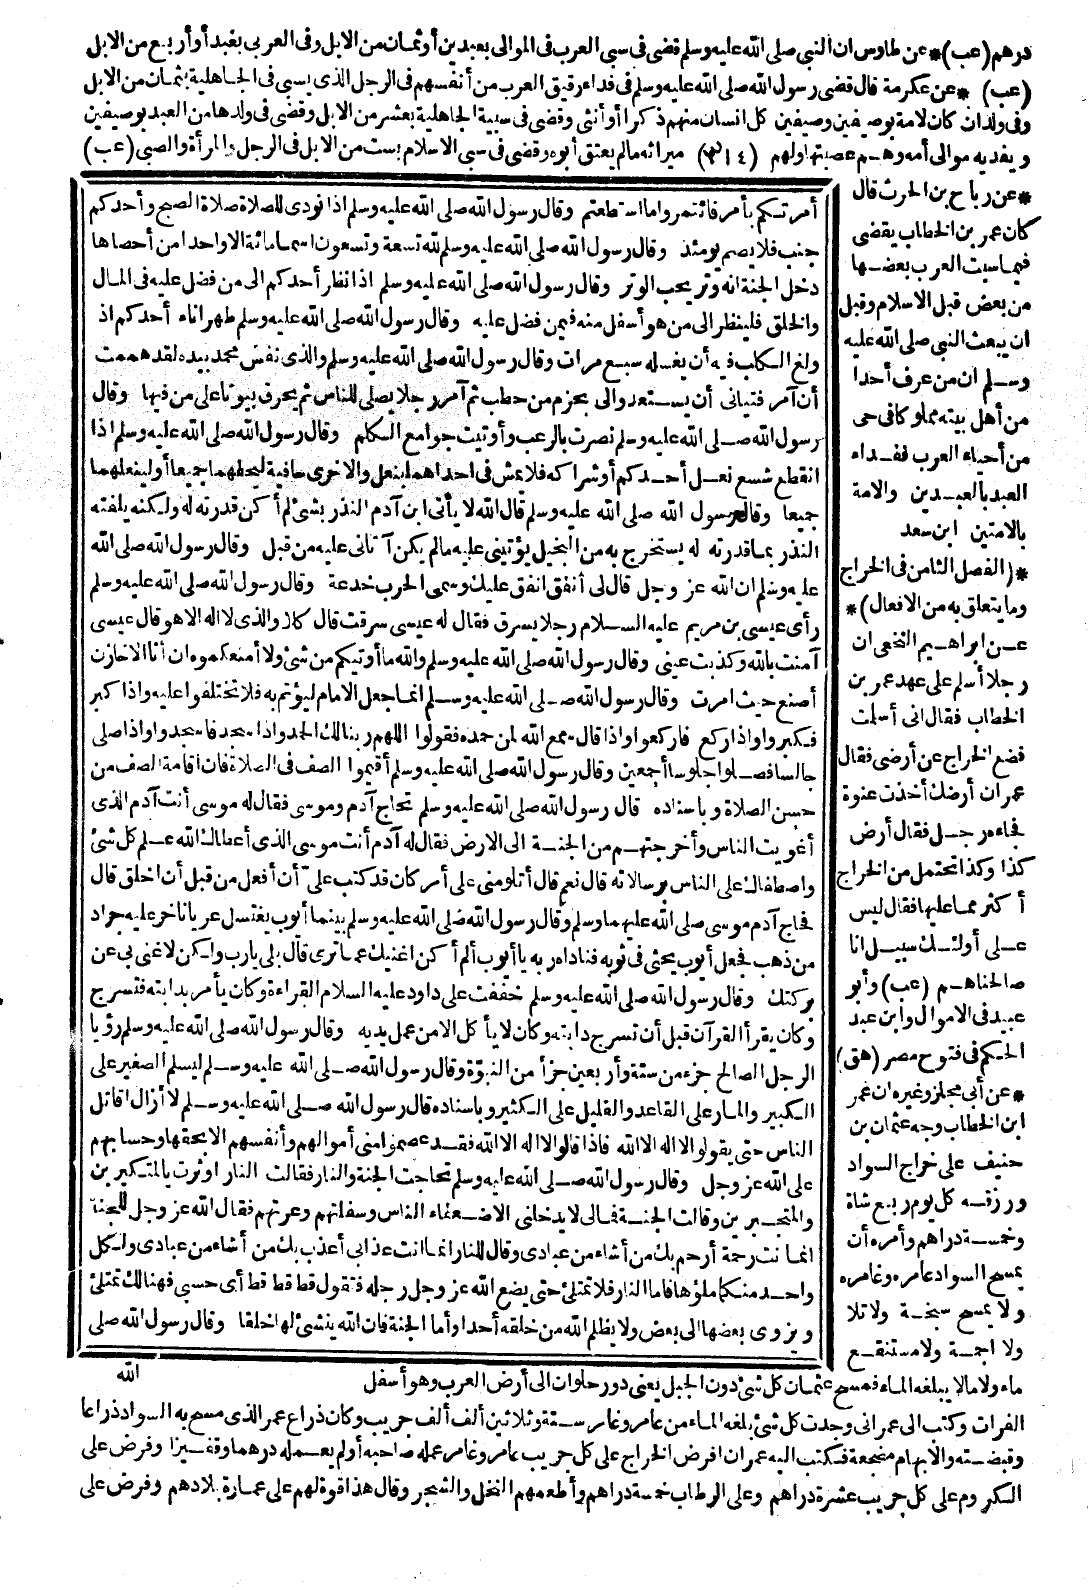 درهم (عب) * عن طاوس ان النبي صلى الله عليه وسلم قضى في سبي العرب في الموالى بعبدين أو ثمان من الابل وفى العربى بغبد أو أربع من الابل
(عب) * عن عكرمة قال قضى رسول الله صلى الله عليه وسلم فى فداء رقيق العرب من أنفسهم فى الرجل الذى يسبى فى الجاهلية بثمان من الابل
وفى ولدان كان لامة بوصيفين وصيفين كل انسان منهم ذكرا أو أنثى وقضى فى سبية الجاهلية بعشر من الابل وقضى فى ولدها من العبد بوصيفين
ويفديه موالى أمه وهم عصبتها ولهم (٣١٤) ميراثه مالم يعتق أبوه وقضى فى سبى الاسلام بست من الابل فى الرجل والمرأة والصبى (عب)
* عن رباح بن الحرث قال
كان عمر بن الخطاب يقضى
فيما سبت العرب بعضها
من بعض قبل الاسلام وقبل
ان يبعث النبي صلى الله عليه
وسلم ان من عرف أحدا
من أهل بيته مملوكا فى حى
من أحياء العرب ففداء
العبد بالعبدين والامة
بالامتين ابن سعد
* (الفصل الثامن فى الخراج
وما يتعلق به من الافعال) *
عن ابراهيم النخعى ان
رجلا أسلم على عهد عمر بن
الخطاب فقال انى أسلمت
فضع الخراج عن أرضى فقال
عمر ان أرضك أخذت عنوة
فجاءه رجل فقال أرض
كذا وكذا تحتمل من الخراج
أكثر مما عليها فقال ليس
على أولئك سبيل انا
صالحناهم (عب) وأبو
عبيد فى الاموال وابن عبد
الحكم فى فتوح مصر (هق)
* عن أبى مجلز وغيره ان عمر
ابن الخطاب وجه عثمان بن
حنيف على خراج السواد
ورزقه كل يوم ربع شاة
وخمسة دراهم وأمره أن
يمسح السواد عامره وغامره
ولا يمسح سبخة ولا تلا
ولا اجمة ولا مستنقع
أمرتكم بأمر فائتمروا ما استطعتم وقال رسول الله صلى الله عليه وسلم اذا نودى للصلاة صلاة الصبح وأحدكم
جنب فلا يصم يومئذ وقال رسول الله صلى الله عليه وسلم لله تسعة وتسعون اسما مائة الا واحدا من أحصاها
دخل الجنة انه وتر يحب الوتر وقال رسول الله صلى الله عليه وسلم اذا نظر أحدكم الى من فضل عليه فى المال
والخلق فلينظر الى من هو أسفل منه فيمن فضل عليه وقال رسول الله صلى الله عليه وسلم طهر اناء أحدكم اذ
ولغ الكلب فيه أن يغسله سبع مرات وقال رسول الله صلى الله عليه وسلم والذى نفس محمد بيده لقد هممت
أن آمر فتيانى أن يستعدوا لى بحزم من حطب ثم آمر رجلا يصلى للناس ثم يحرق بيوتا على من فيها وقال
رسول الله صلى الله عليه وسلم نصرت بالرعب وأوتيت جوامع الكلم وقال رسول الله صلى الله عليه وسلم اذا
انقطع شسع نعل أحدكم أو شراكه فلا يمش فى احداهما بنعل والاخرى حافية ليحفهما جميعا أو لينعلهما
جميعا وقال رسول الله صلى الله عليه وسلم قال الله لا يأتى ابن آدم النذر بشئ لم أكن قدرته له ولكنه يلفته
النذر بما قدرته له يستخرج به من البخيل يؤتينى عليه مالم يكن آتانى عليه من قبل وقال رسول الله صلى الله
عليه وسلم ان الله عز وجل قال لى أنفق انفق عليك وسمى الحرب خدعة وقال رسول الله صلى الله عليه وسلم
رأى عيسى بن مريم عليه السلام رجلا يسرق فقال له عيسى سرقت قال كلا والذى لا اله الا هو قال عيسى
آمنت بالله وكذبت عينى وقال رسول الله صلى الله عليه وسلم والله ما أوتيكم من شئ ولا أمنعكموه ان أنا الا خازن
أصنع حيث امرت وقال رسول الله صلى الله عليه وسلم انما جعل الامام ليؤتم به فلا تختلفوا عليه واذا كبر
فكبروا واذا ركع فاركعوا واذا قال سمع الله لمن حمده فقولوا اللهم ربنا لك الحمد واذا سجد فاسجدوا واذا صلى
جالسا فصلوا جلوسا أجمعين وقال رسول الله صلى الله عليه وسلم أقيموا الصف فى الصلاة فان اقامة الصف من
حسن الصلاة وباسناده قال رسول الله صلى الله عليه وسلم تحاج آدم وموسى فقال له موسى أنت آدم الذى
أغويت الناس وأخرجتهم من الجنة الى الارض فقال له آدم أنت موسى الذى أعطاك الله علم كل شئ
واصطفاك على الناس برسالاته قال نعم قال أتلومنى على أمر كان قد كتب على أن أفعل من قبل أن اخلق قال
فحاج آدم موسى صلى الله عليهما وسلم وقال رسول الله صلى الله عليه وسلم بينما أيوب يغتسل عريانا خر عليه جراد
من ذهب فجعل أيوب يحثى فى ثوبه فناداه ربه يا أيوب ألم أكن اغنيك عما ترى قال بلى يارب ولكن لا غنى بى عن
بركتك وقال رسول الله صلى الله عليه وسلم خففت على داود عليه السلام القراءة وكان يأمر بدابته فتسرج
وكان يقرأ القرآن قبل أن تسرج دابته وكان لا يأكل الا من عمل يديه وقال رسول الله صلى الله عليه وسلم رؤيا
الرجل الصالح جزء من ستة وأربعين جزأ من النبوة وقال رسول الله صلى الله عليه وسلم ليسلم الصغير على
الكبير والمار على القاعد والقليل على الكثير وباسناده قال رسول الله صلى الله عليه وسلم لا أزال اقاتل
الناس حتى يقولوا لا اله الا الله فاذا قالوا لا اله الا الله فقد عصموا منى أموالهم وأنفسهم الا بحقها وحسابهم
على الله عز وجل وقال رسول الله صلى الله عليه وسلم تحاجت الجنة والنار فقالت النار اوثرت بالمتكبرين
والمتجبرين وقالت الجنة فمالى لا يدخلنى الا ضعفاء الناس وسفلتهم وغرتهم فقال الله عز وجل للجنة
انما أنت رحمة أرحم بك من أشاء من عبادى وقال للنار انما أنت عذابى أعذب بك من أشاء من عبادى ولكل
واحد منكما ملؤها فاما النار فلا تمتلئ حتى يضع الله عز وجل رجله فتقول قط قط قط أى حسبى فهنالك تمتلئ
ويزوى بعضها الى بعض ولا يظلم الله من خلقه أحدا وأما الجنة فان الله ينشئ لها خلقا وقال رسول الله صلى
الله
ماء ولا مالا يبلغه الماء فمسح عثمان كل شئ دون الجبل يعنى دور حلوان الى أرض العرب وهو أسفل
الفرات وكتب الى عمر انى وجدت كل شئ بلغه الماء من عامر وغامر ستة وثلاثين ألف ألف جريب وكان ذراع عمر الذى مسح به السواد ذراعا
وقبضته والابهام مضجعة فكتب اليه عمر ان افرض الخراج على كل جريب عامر وغامر عمله صاحبه أولم يعمله درهما وقفيزا وفرض على
الكروم على كل جريب عشرة دراهم وعلى الرطاب خمسة دراهم وأطعمهم النخل والشجر وقال هذا قوة لهم على عمارة بلادهم وفرض على